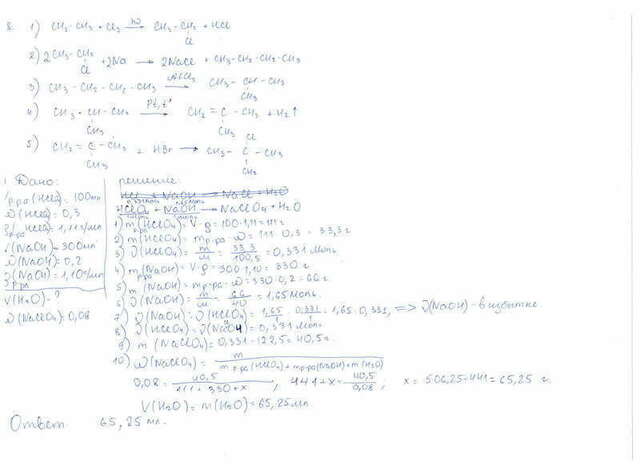 8. 1) CH3-CH3 + Cl2 hν→ CH3-CH2 + HCl
Cl
2) 2CH3-CH2 + 2Na → 2NaCl + CH3-CH2-CH2-CH3
Cl
3) CH3-CH2-CH2-CH3 AlCl3→ CH3-CH-CH3
CH3
4) CH3-CH-CH3 Pt, t°→ CH2=C-CH3 + H2↑
CH3 CH3
5) CH2=C-CH3 + HBr → CH3-C-CH3
CH3 CH3
Дано:
р-ра (HClO3) = 100мл
ω(HClO3) = 0,3
р-ра (HClO3) = 1,11г/мл
(NaOH) = 300мл
ω(NaOH) = 0,2
р-ра (NaOH) = 1,10г/мл
V(H2O) - ?
ω(NaClO3) = 0,08
решение:
HCl + NaOH → NaCl + H2O
+ NaOH → + H2O
1) m р-ра = V·ρ = 100·1,11 = 111г
2) m = mр-ра·ω = 111·0,3 = 33,3г
3) ν = m/M = 33,3/100,5 = 0,331моль.
4) m р-ра (NaOH) = V·ρ = 300·1,10 = 330г
5) m(NaOH) = mр-ра·ω = 330·0,2 = 66г
6) ν(NaOH) = m/M = 66/40 = 1,65моль.
7) ν(NaOH) : ν = 1,65/1 : 0,331/1 = 1,65 : 0,331, => ν(NaOH) - в избытке.
8) ν = ν = 0,331моль
9) m = 0,331·122,5 = 40,5г.
10) ω = m / m р-ра + mр-ра(NaOH) + m(H2O)
0,08 = 40,5/111+330+x, 441+x = 40,5/0,08; x = 506,25-441 = 65,25 г.
V(H2O) = m(H2O) = 65,25мл.
Ответ 65,25 мл.